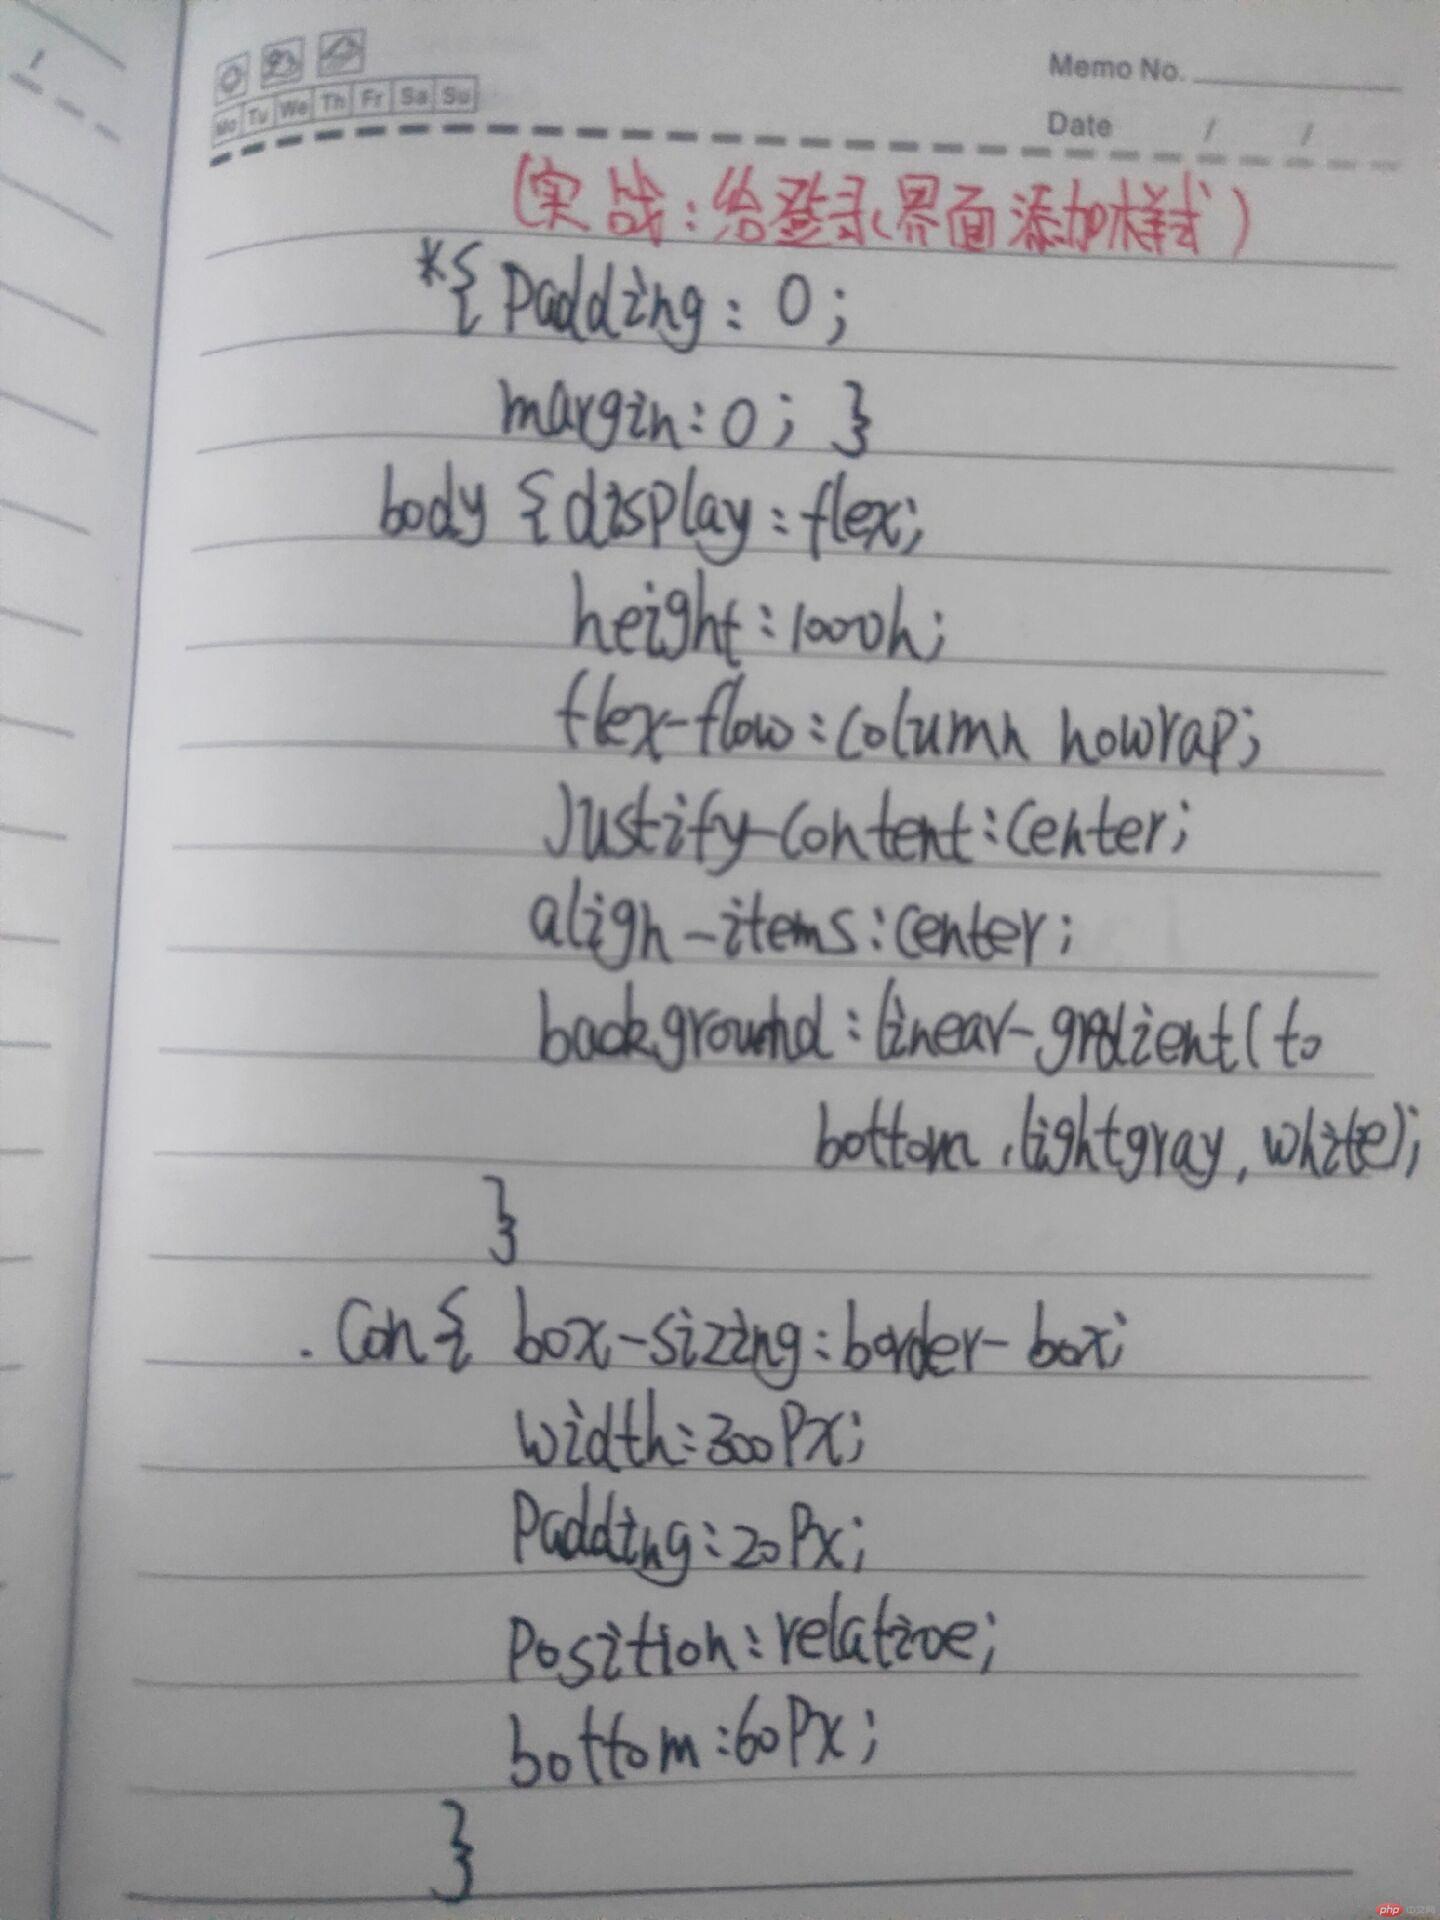 Memo No.
Mo Tu We Th Fr Sa Su
Date / /
(实战:给登录界面添加样式)
*{ padding: 0;
margin:0; }
body {display:flex;
height:1000h;
flex-flow:column nowrap;
justify-content:center;
align-items:center;
background:linear-gradient(to
bottom,lightgray,white);
}
.Con{ box-sizing:border-box;
width:300Px;
Padding:20Px;
Position:relative;
bottom:60Px;
}
php 中文网